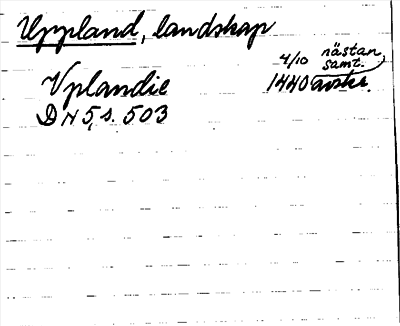 Uppland, landskap
Vplandie 4/10 1440 nästan samt. avskr.
DN 5, s. 503